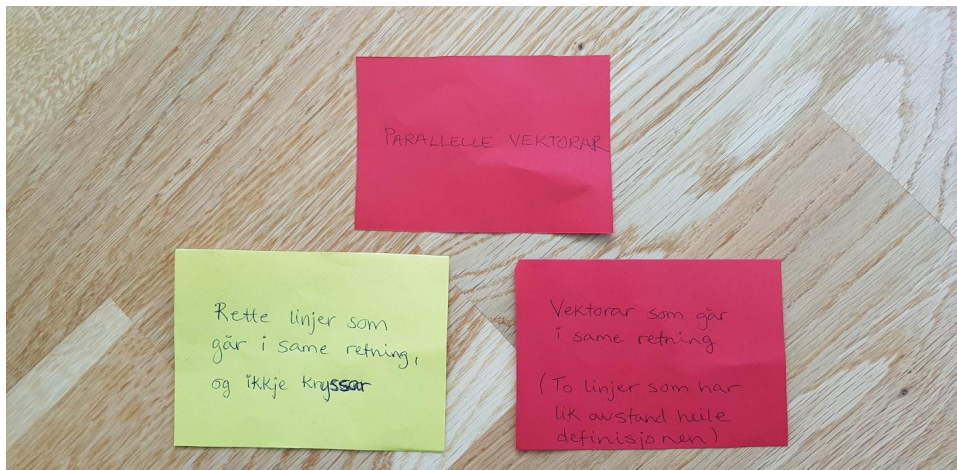 PARALLELLE VEKTORAR
Rette linjer som
går i same retning,
og ikkje kryssar
Vektorar som går
i same retning
(To linjer som har
lik avstand heile
definisjonen)